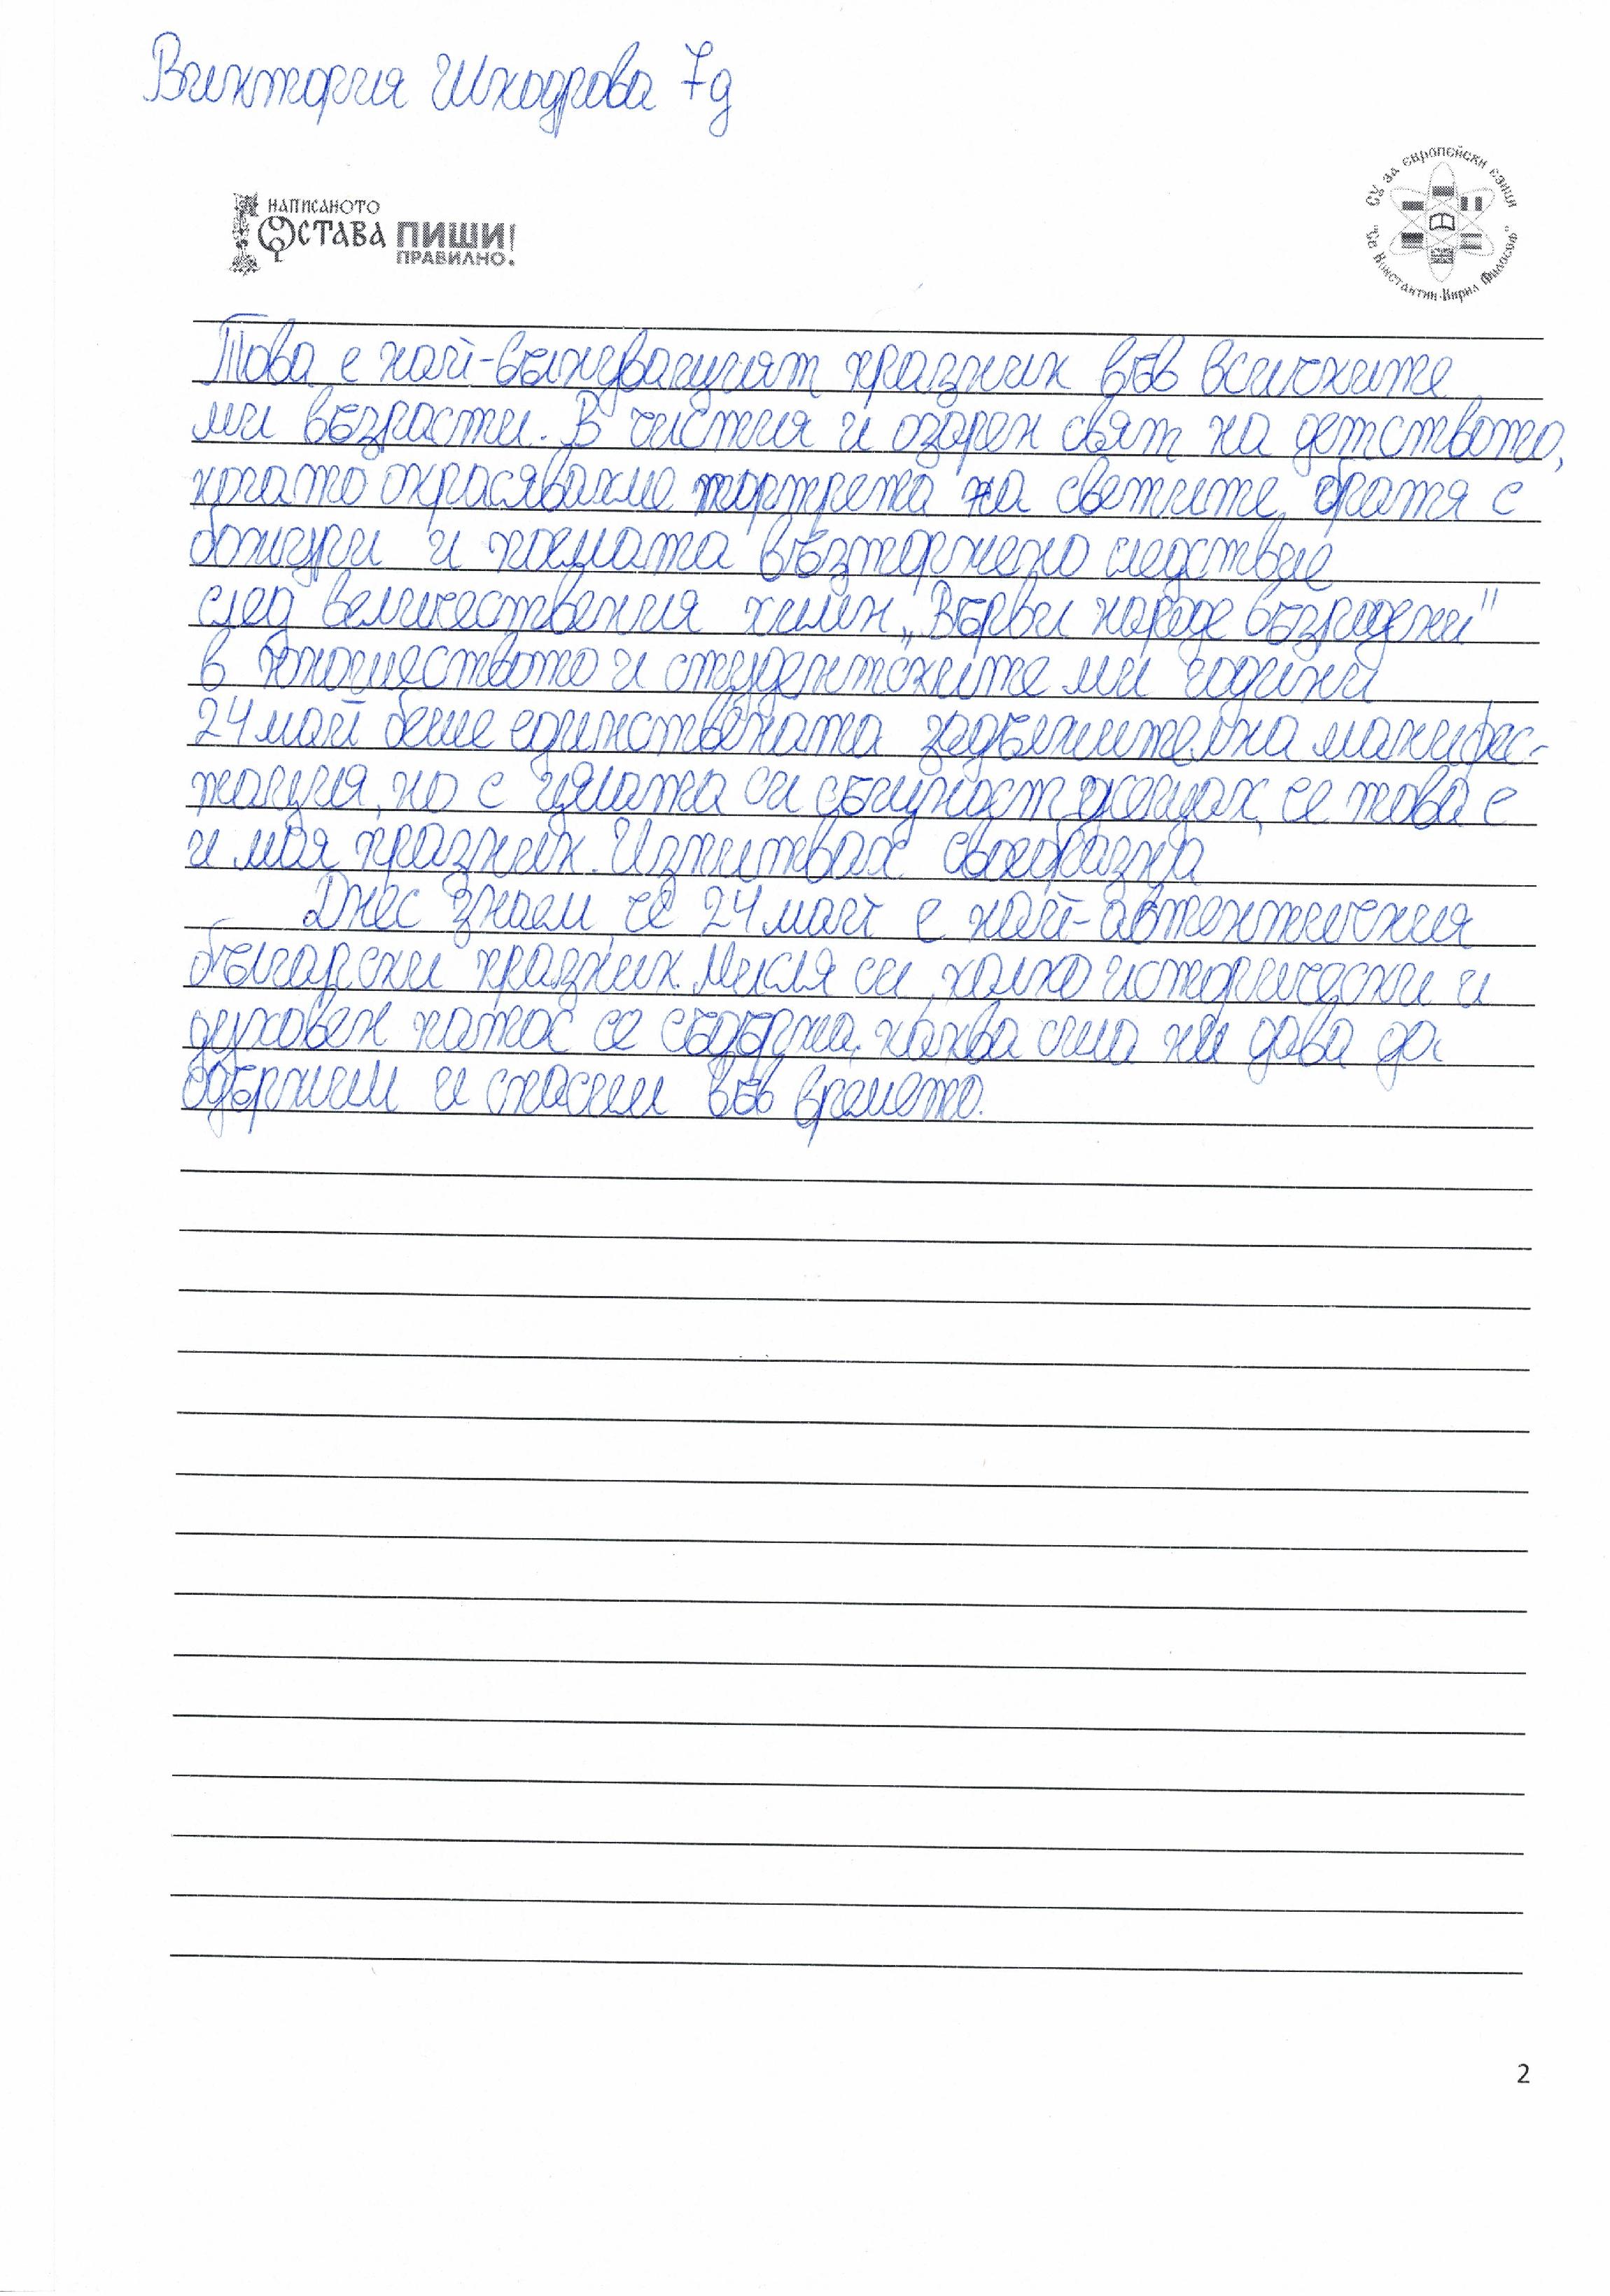 Виктория Шкодрова 7д
НАПИСАНОТО
ОСТАВА ПИШИ!
ПРАВИЛНО.
СУ за европейски езици
"Св. Константин-Кирил Философ"
Това е най-вълнуващият празник във всичките
ми възрасти. В чистия и озарен свят на детството,
когато окрасявахме портрета на светите братя с
божури и поемата възторжено следствие
след величествения химн „Върви народе възродени"
в юношеството и студентските ми години
24 май беше единствената задължителна манифес-
тация, но с цялата си същност усещах, че това е
и моя празник. Изпитвах своеобразна
Днес знаем че 24 май е най-автентичния
български празник. Мисля си, колко исторически и
духовен патос се съдържа, каква сила ни дава да
одържим и спасим във времето.
2